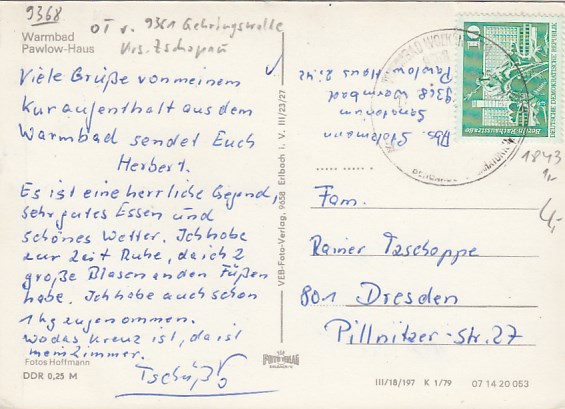 9368
OT v. 9361 Gehringswalde
Krs. Zschopau
Warmbad
Pawlow-Haus
Viele Grüße von meinem
Kuraufenthalt aus dem
Warmbad sendet Euch
Herbert.
Es ist eine herrliche Gegend,
sehr gutes Essen und
schönes Wetter. Ich habe
zur Zeit Ruhe, da ich 2
große Blasen an den Füßen
habe. Ich habe auch schon
1 kg zugenommen.
Wo das Kreuz ist, da ist
mein Zimmer.
Tschüß
Fotos Hoffmann
DDR 0,25 M
VEB-Foto-Verlag, 9658 Erlbach i. V. III/23/27
Abs. Stolzmann
Sanatorium
9368 Warmbad
Pawlow Haus Zi. 42
10
DEUTSCHE DEMOKRATISCHE REPUBLIK
1843
1,-
4,-
Fam.
Rainer Taschoppe
801 Dresden
Pillnitzer-Str. 27
FOTO VERLAG
III/18/197 K 1/79 07 14 20 053